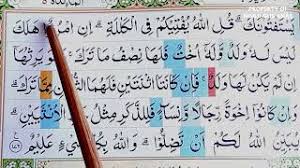 PROPERTY OF
يَسْتَفْتُوْنَكَۗ قُلِ اللّٰهُ يُفْتِيْكُمْ فِى الْكَلٰلَةِۗ اِنِ امْرُؤٌا هَلَكَ
لَيْسَ لَهٗ وَلَدٌ وَّلَهٗٓ اُخْتٌ فَلَهَا نِصْفُ مَا تَرَكَۚ وَهُوَ يَرِثُهَآ
اِنْ لَّمْ يَكُنْ لَّهَا وَلَدٌۚ فَاِنْ كَانَتَا اثْنَتَيْنِ فَلَهُمَا الثُّلُثٰنِ مِمَّا تَرَكَۗ
وَاِنْ كَانُوْٓا اِخْوَةً رِّجَالًا وَّنِسَاۤءً فَلِلذَّكَرِ مِثْلُ حَظِّ الْاُنْثَيَيْنِۗ
يُبَيِّنُ اللّٰهُ لَكُمْ اَنْ تَضِلُّوْاۗ وَاللّٰهُ بِكُلِّ شَيْءٍ عَلِيْمٌ